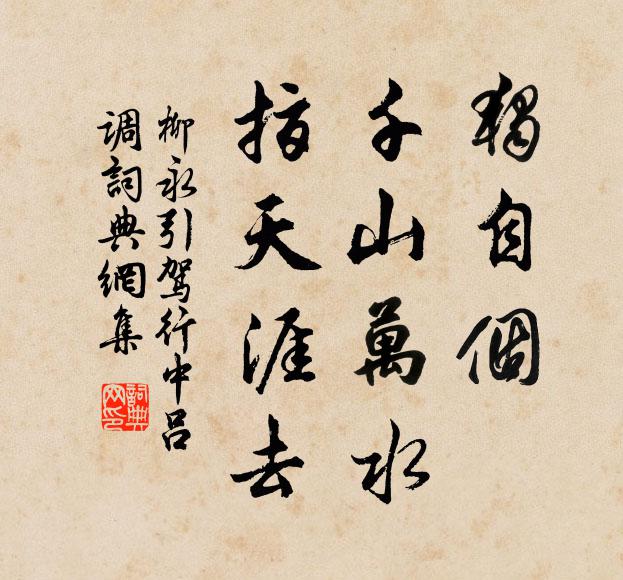 獨自個
千山萬水
指天涯去
柳永引駕行中呂
调詞典網集
詞典
网印